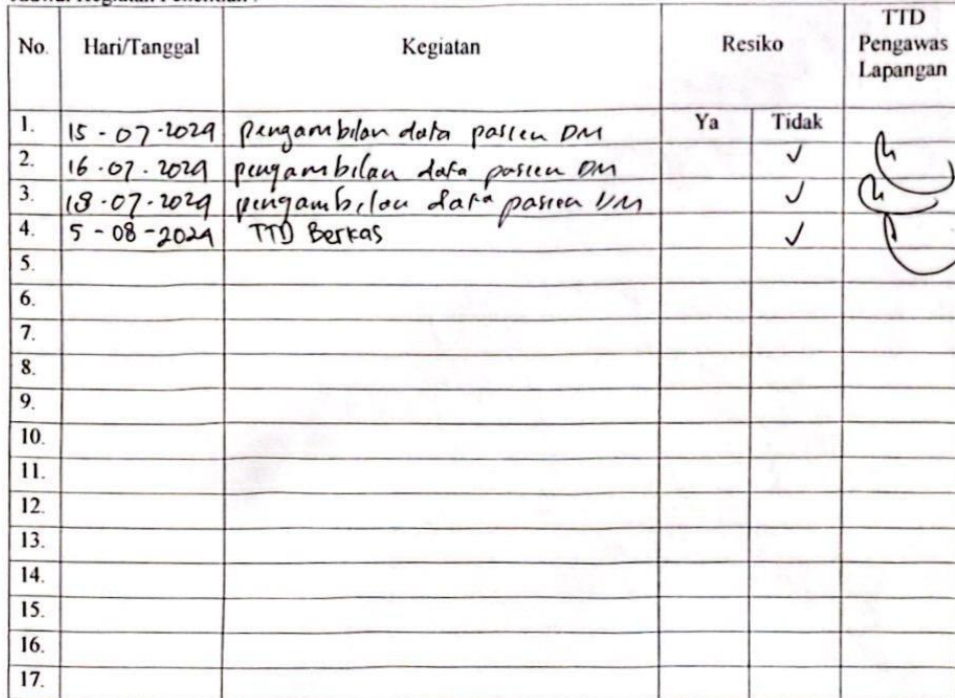 Jadwal Kegiatan Penelitian :
No. Hari/Tanggal Kegiatan Resiko TTD Pengawas Lapangan
Ya Tidak
1. 15-07-2024 pengambilan data pasien DM
2. 16-07-2024 pengambilan data pasien DM ✓
3. 18-07-2024 pengambilan data pasien DM ✓
4. 5-08-2024 TTD Berkas ✓
5.
6.
7.
8.
9.
10.
11.
12.
13.
14.
15.
16.
17.